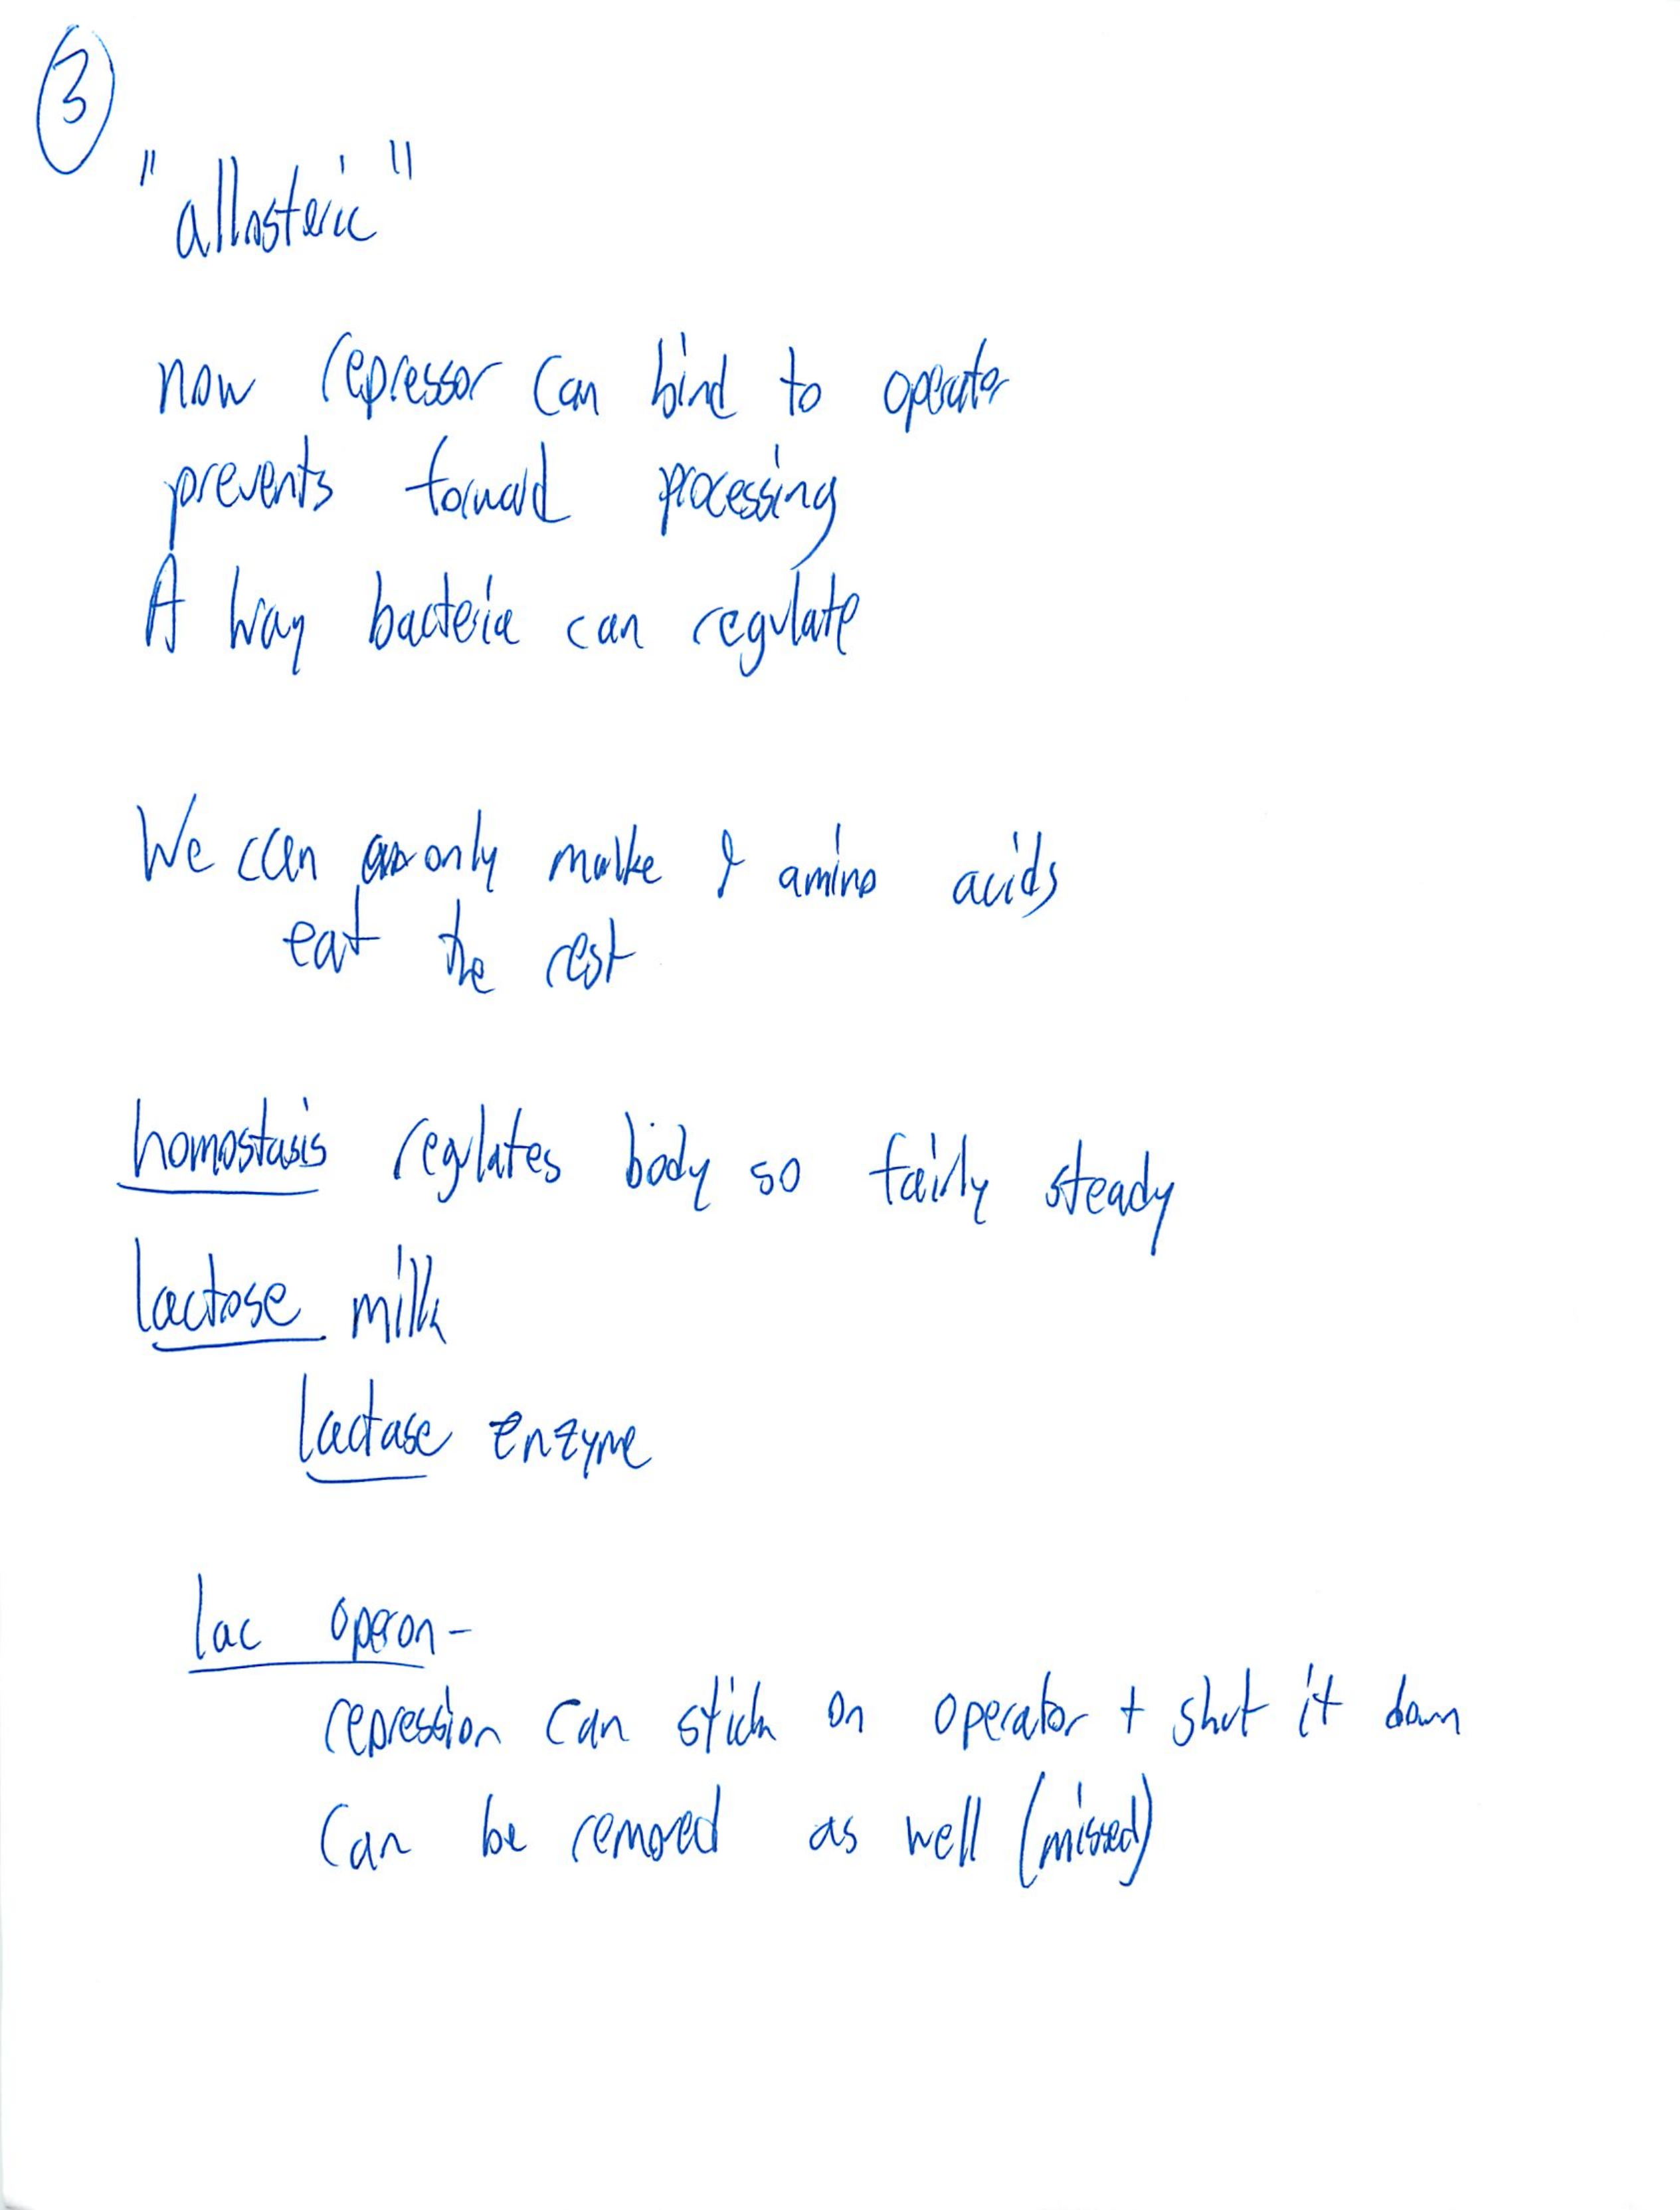 3
"allosteric"
now repressor can bind to operator
prevents forward processing
A way bacteria can regulate
We can only make amino acids
eat the rest
homostasis regulates body so fairly steady
lactose milk
lactase enzyme
lac operon-
repression can stick on operator + shut it down
Can be removed as well (missed)